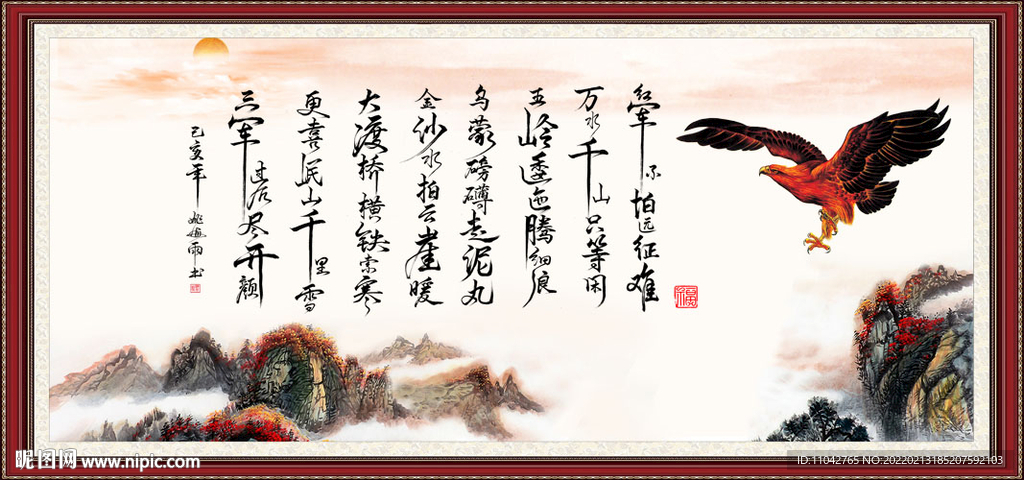 红军不怕远征难
万水千山只等闲
五岭逶迤腾细浪
乌蒙磅礴走泥丸
金沙水拍云崖暖
大渡桥横铁索寒
更喜岷山千里雪
三军过后尽开颜
己亥年 雨书
昵图网 www.nipic.com
ID:11042765 NO:20220213185207592103